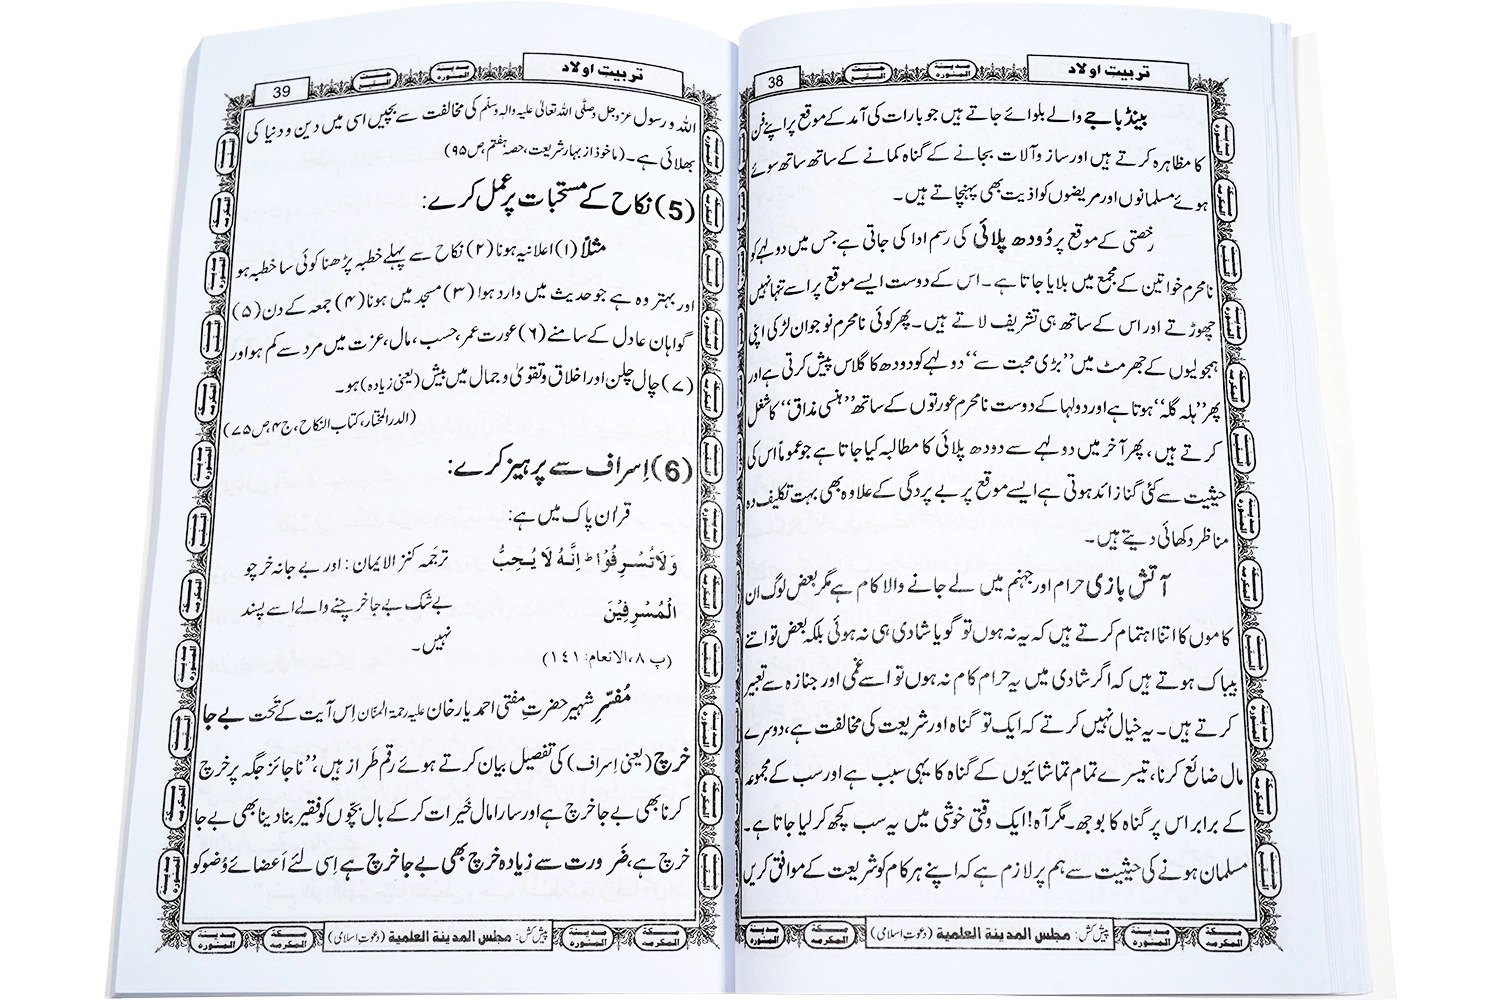 38
تربیتِ اولاد
بینڈ باجے والے بلوائے جاتے ہیں جو بارات کی آمد کے موقع پر اپنے فن
کا مظاہرہ کرتے ہیں اور ساز و آلات بجانے کے گناہ کمانے کے ساتھ ساتھ سوئے
ہوئے مسلمانوں اور مریضوں کو اذیت بھی پہنچاتے ہیں۔
رخصتی کے موقع پر دُودھ پلائی کی رسم ادا کی جاتی ہے جس میں دولہے کو
نامحرم خواتین کے مجمع میں بلایا جاتا ہے۔ اس کے دوست ایسے موقع پر اسے تنہا نہیں
چھوڑتے اور اس کے ساتھ ہی تشریف لاتے ہیں۔ پھر کوئی نامحرم نوجوان لڑکی اپنی
ہمجولیوں کے جھرمٹ میں ’’بڑی محبت سے‘‘ دولہے کو دودھ کا گلاس پیش کرتی ہے اور
پھر ’’ہلہ گلہ‘‘ ہوتا ہے اور دولہا کے دوست نامحرم عورتوں کے ساتھ ’’ہنسی مذاق‘‘ کا شغل
کرتے ہیں، پھر آخر میں دولہے سے دودھ پلائی کا مطالبہ کیا جاتا ہے جو عموماً اس کی
حیثیت سے کئی گنا زائد ہوتی ہے ایسے موقع پر بے پردگی کے علاوہ بھی بہت تکلیف دہ
مناظر دکھائی دیتے ہیں۔
آتش بازی حرام اور جہنم میں لے جانے والا کام ہے مگر بعض لوگ ان
کاموں کا اتنا اہتمام کرتے ہیں کہ یہ نہ ہوں تو گویا شادی ہی نہ ہوئی بلکہ بعض تو اتنے
بیباک ہوتے ہیں کہ اگر شادی میں یہ حرام کام نہ ہوں تو اسے غمی اور جنازہ سے تعبیر
کرتے ہیں۔ یہ خیال نہیں کرتے کہ ایک تو گناہ اور شریعت کی مخالفت ہے، دوسرے
مال ضائع کرنا، تیسرے تمام تماشائیوں کے گناہ کا یہی سبب ہے اور سب کے مجموعہ
کے برابر اس پر گناہ کا بوجھ۔ مگر آہ! ایک وقتی خوشی میں یہ سب کچھ کر لیا جاتا ہے۔
مسلمان ہونے کی حیثیت سے ہم پر لازم ہے کہ اپنے ہر کام کو شریعت کے موافق کریں
پیش کش: مجلس المدینۃ العلمیۃ (دعوتِ اسلامی)
39
تربیتِ اولاد
اللہ و رسول عزوجل و صلَّی اللہ تعالیٰ علیہ والہٖ وسلَّم کی مخالفت سے بچیں اسی میں دین و دنیا کی
بھلائی ہے۔ (ماخوذ از بہار شریعت، حصہ ہفتم ص ۹۵)
(5) نکاح کے مستحبات پر عمل کرے:
مثلاً (۱) اعلانیہ ہونا (۲) نکاح سے پہلے خطبہ پڑھنا کوئی سا خطبہ ہو
اور بہتر وہ ہے جو حدیث میں وارد ہوا (۳) مسجد میں ہونا (۴) جمعہ کے دن (۵)
گواہان عادل کے سامنے (۶) عورت عمر، حسب، مال، عزت میں مرد سے کم ہو اور
(۷) چال چلن اور اخلاق و تقویٰ و جمال میں بیش (یعنی زیادہ) ہو۔
(الدر المختار، کتاب النکاح، ج ۴ ص ۷۵)
(6) اِسراف سے پرہیز کرے:
قران پاک میں ہے:
وَلَا تُسْرِفُوۡا ؕ اِنَّهٗ لَا يُحِبُّ ترجَمہ کنز الایمان: اور بے جا نہ خرچو
الْمُسْرِفِيْنَ بے شک بے جا خرچنے والے اسے پسند
نہیں۔
(پ ۸، الانعام: ۱۴۱)
مُفسّرِ شہیر حضرتِ مفتی احمد یار خان علیہ رحمۃ المنّان اِس آیت کے تَحت بے جا
خرچ (یعنی اِسراف) کی تفصیل بیان کرتے ہوئے رقم طَراز ہیں، ’’ناجائز جگہ پر خرچ
کرنا بھی بے جا خرچ ہے اور سارا مال خَیرات کر کے بال بچّوں کو فقیر بنا دینا بھی بے جا
خرچ ہے، ضَرورت سے زِیادہ خرچ بھی بے جا خرچ ہے اِسی لئے اَعضائے وُضو کو
پیش کش: مجلس المدینۃ العلمیۃ (دعوتِ اسلامی)